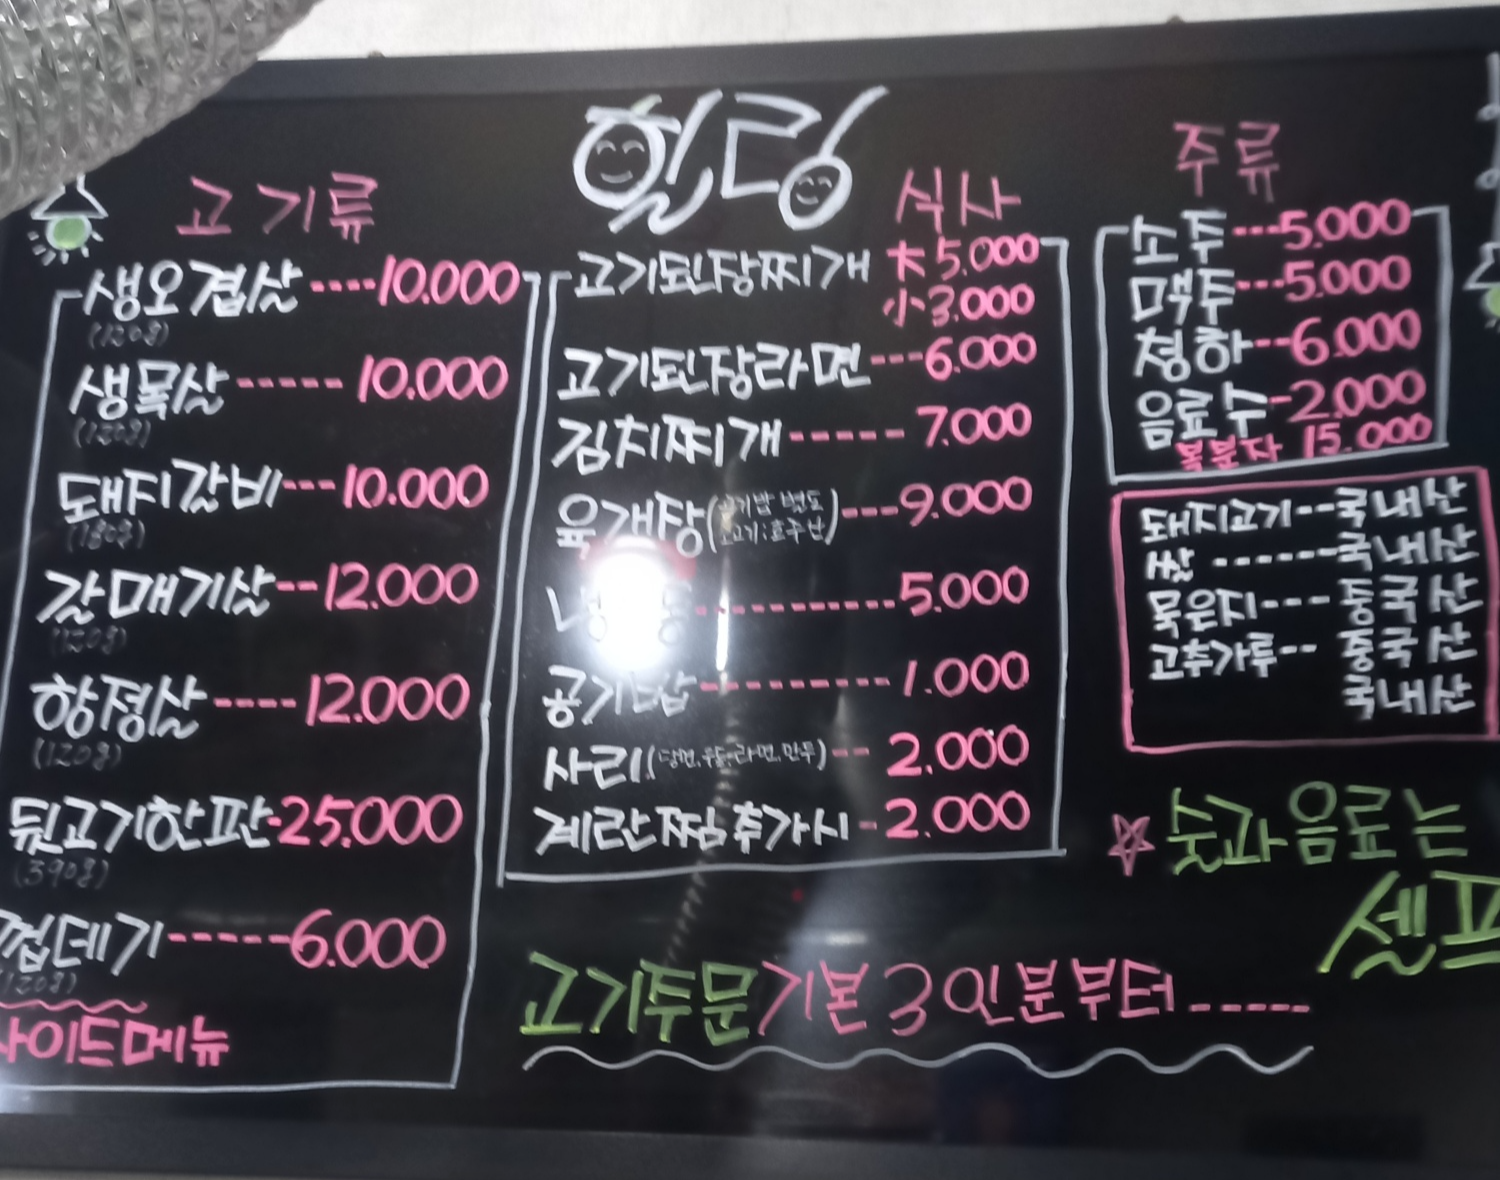 힐링
고기류
생오겹살 ----10.000
(120g)
생목살 ----- 10.000
(120g)
돼지갈비---10.000
(180g)
갈매기살--12.000
(120g)
항정살 ----12.000
(120g)
뒷고기한판-25.000
(390g)
껍데기-----6.000
(120g)
사이드메뉴
식사
고기된장찌개 大 5.000
小 3.000
고기된장라면---6.000
김치찌개----- 7.000
육개장( ---9.000
----------5.000
공기밥---------1.000
사리(당면.우동.라면.만두)-- 2.000
계란찜추가시 -2.000
주류
소주---5.000
맥주---5.000
청하--6.000
음료수-2.000
복분자 15.000
돼지고기--국내산
쌀 ------국내산
묵은지---중국산
고추가루-- 중국산
국내산
☆ 술과 음료는
셀프
고기주문 기본 3인분부터 -----